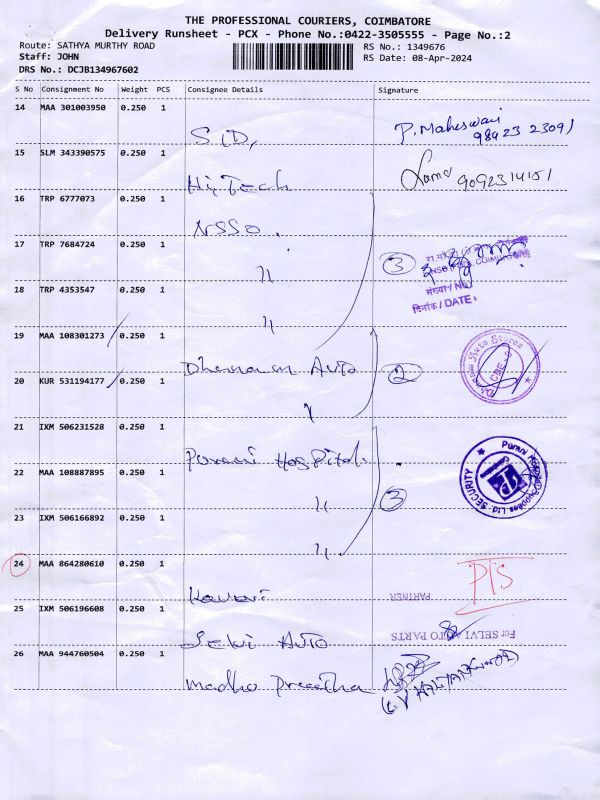 THE PROFESSIONAL COURIERS, COIMBATORE
Delivery Runsheet - PCX - Phone No.:0422-3505555 - Page No.:2
Route: SATHYA MURTHY ROAD RS No.: 1349676
Staff: JOHN RS Date: 08-Apr-2024
DRS No.: DCJB134967602
S No Consignment No Weight PCS Consignee Details Signature
14 MAA 301003950 0.250 1
P. Maheswari
98423 23091
15 SLM 343390575 0.250 1
Hi-Tech
9092314151
16 TRP 6777073 0.250 1
NSSO.
17 TRP 7684724 0.250 1
3
〃
संख्या / NO
दिनांक / DATE:
18 TRP 4353547 0.250 1
〃
19 MAA 108301273 0.250 1
Auto
20 KUR 531194177 0.250 1
2
21 IXM 506231528 0.250 1
Purani Hospitals
22 MAA 108887895 0.250 1
3
SECURITY
〃
23 IXM 506166892 0.250 1
〃
24 MAA 864280610 0.250 1
PTS
PARTNER
25 IXM 506196608 0.250 1
For SELVI AUTO PARTS
Selvi Auto
26 MAA 944760504 0.250 1